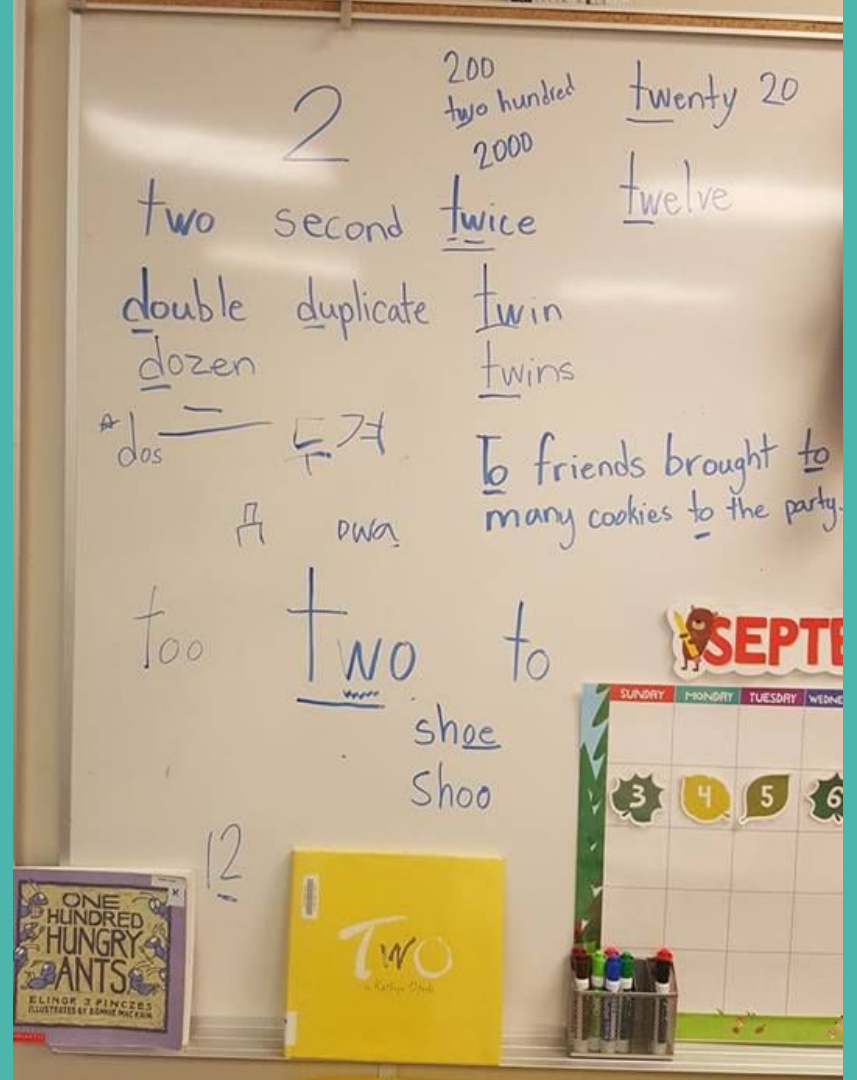 200
two hundred
2000
twenty 20
2
two second twice
twelve
double duplicate twin
dozen
twins
二
dos
To friends brought to
many cookies to the party.
DWA
too two to
shoe
shoo
12
SEPTE
SUNDAY MONDAY TUESDAY WEDNE
3 4 5 6
K
ONE
HUNDRED
HUNGRY
ANTS
ELINOR J PINCZES
ILLUSTRATED BY BONNIE MACKAIN
SCHOLASTIC
Two